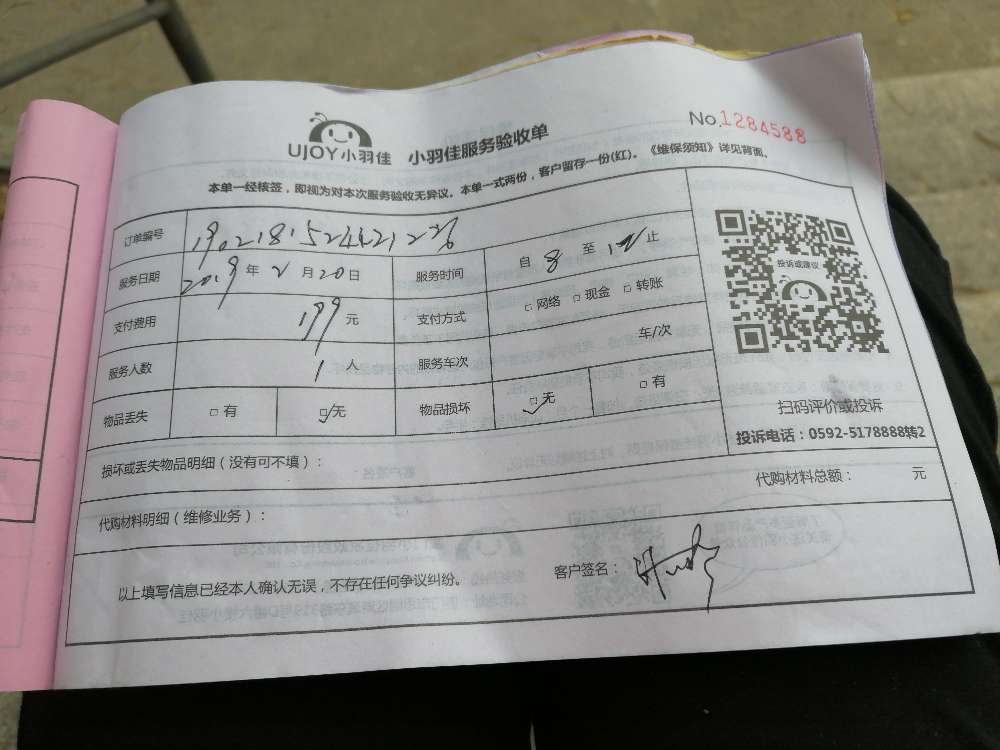 UJOY小羽佳 小羽佳服务验收单 No.1284588
本单一经核签，即视为对本次服务验收无异议。本单一式两份，客户留存一份(红)。《维保须知》详见背面。
订单编号
服务日期 2019年2月20日 服务时间 自8至12止
支付费用 199元 支付方式 □网络 □现金 □转账
服务人数 1人 服务车次 车/次
物品丢失 □有 □无 物品损坏 □无 □有
投诉或建议
扫码评价或投诉
投诉电话：0592-5178888转2
损坏或丢失物品明细（没有可不填）：
代购材料明细（维修业务）： 代购材料总额： 元
以上填写信息已经本人确认无误，不存在任何争议纠纷。 客户签名：